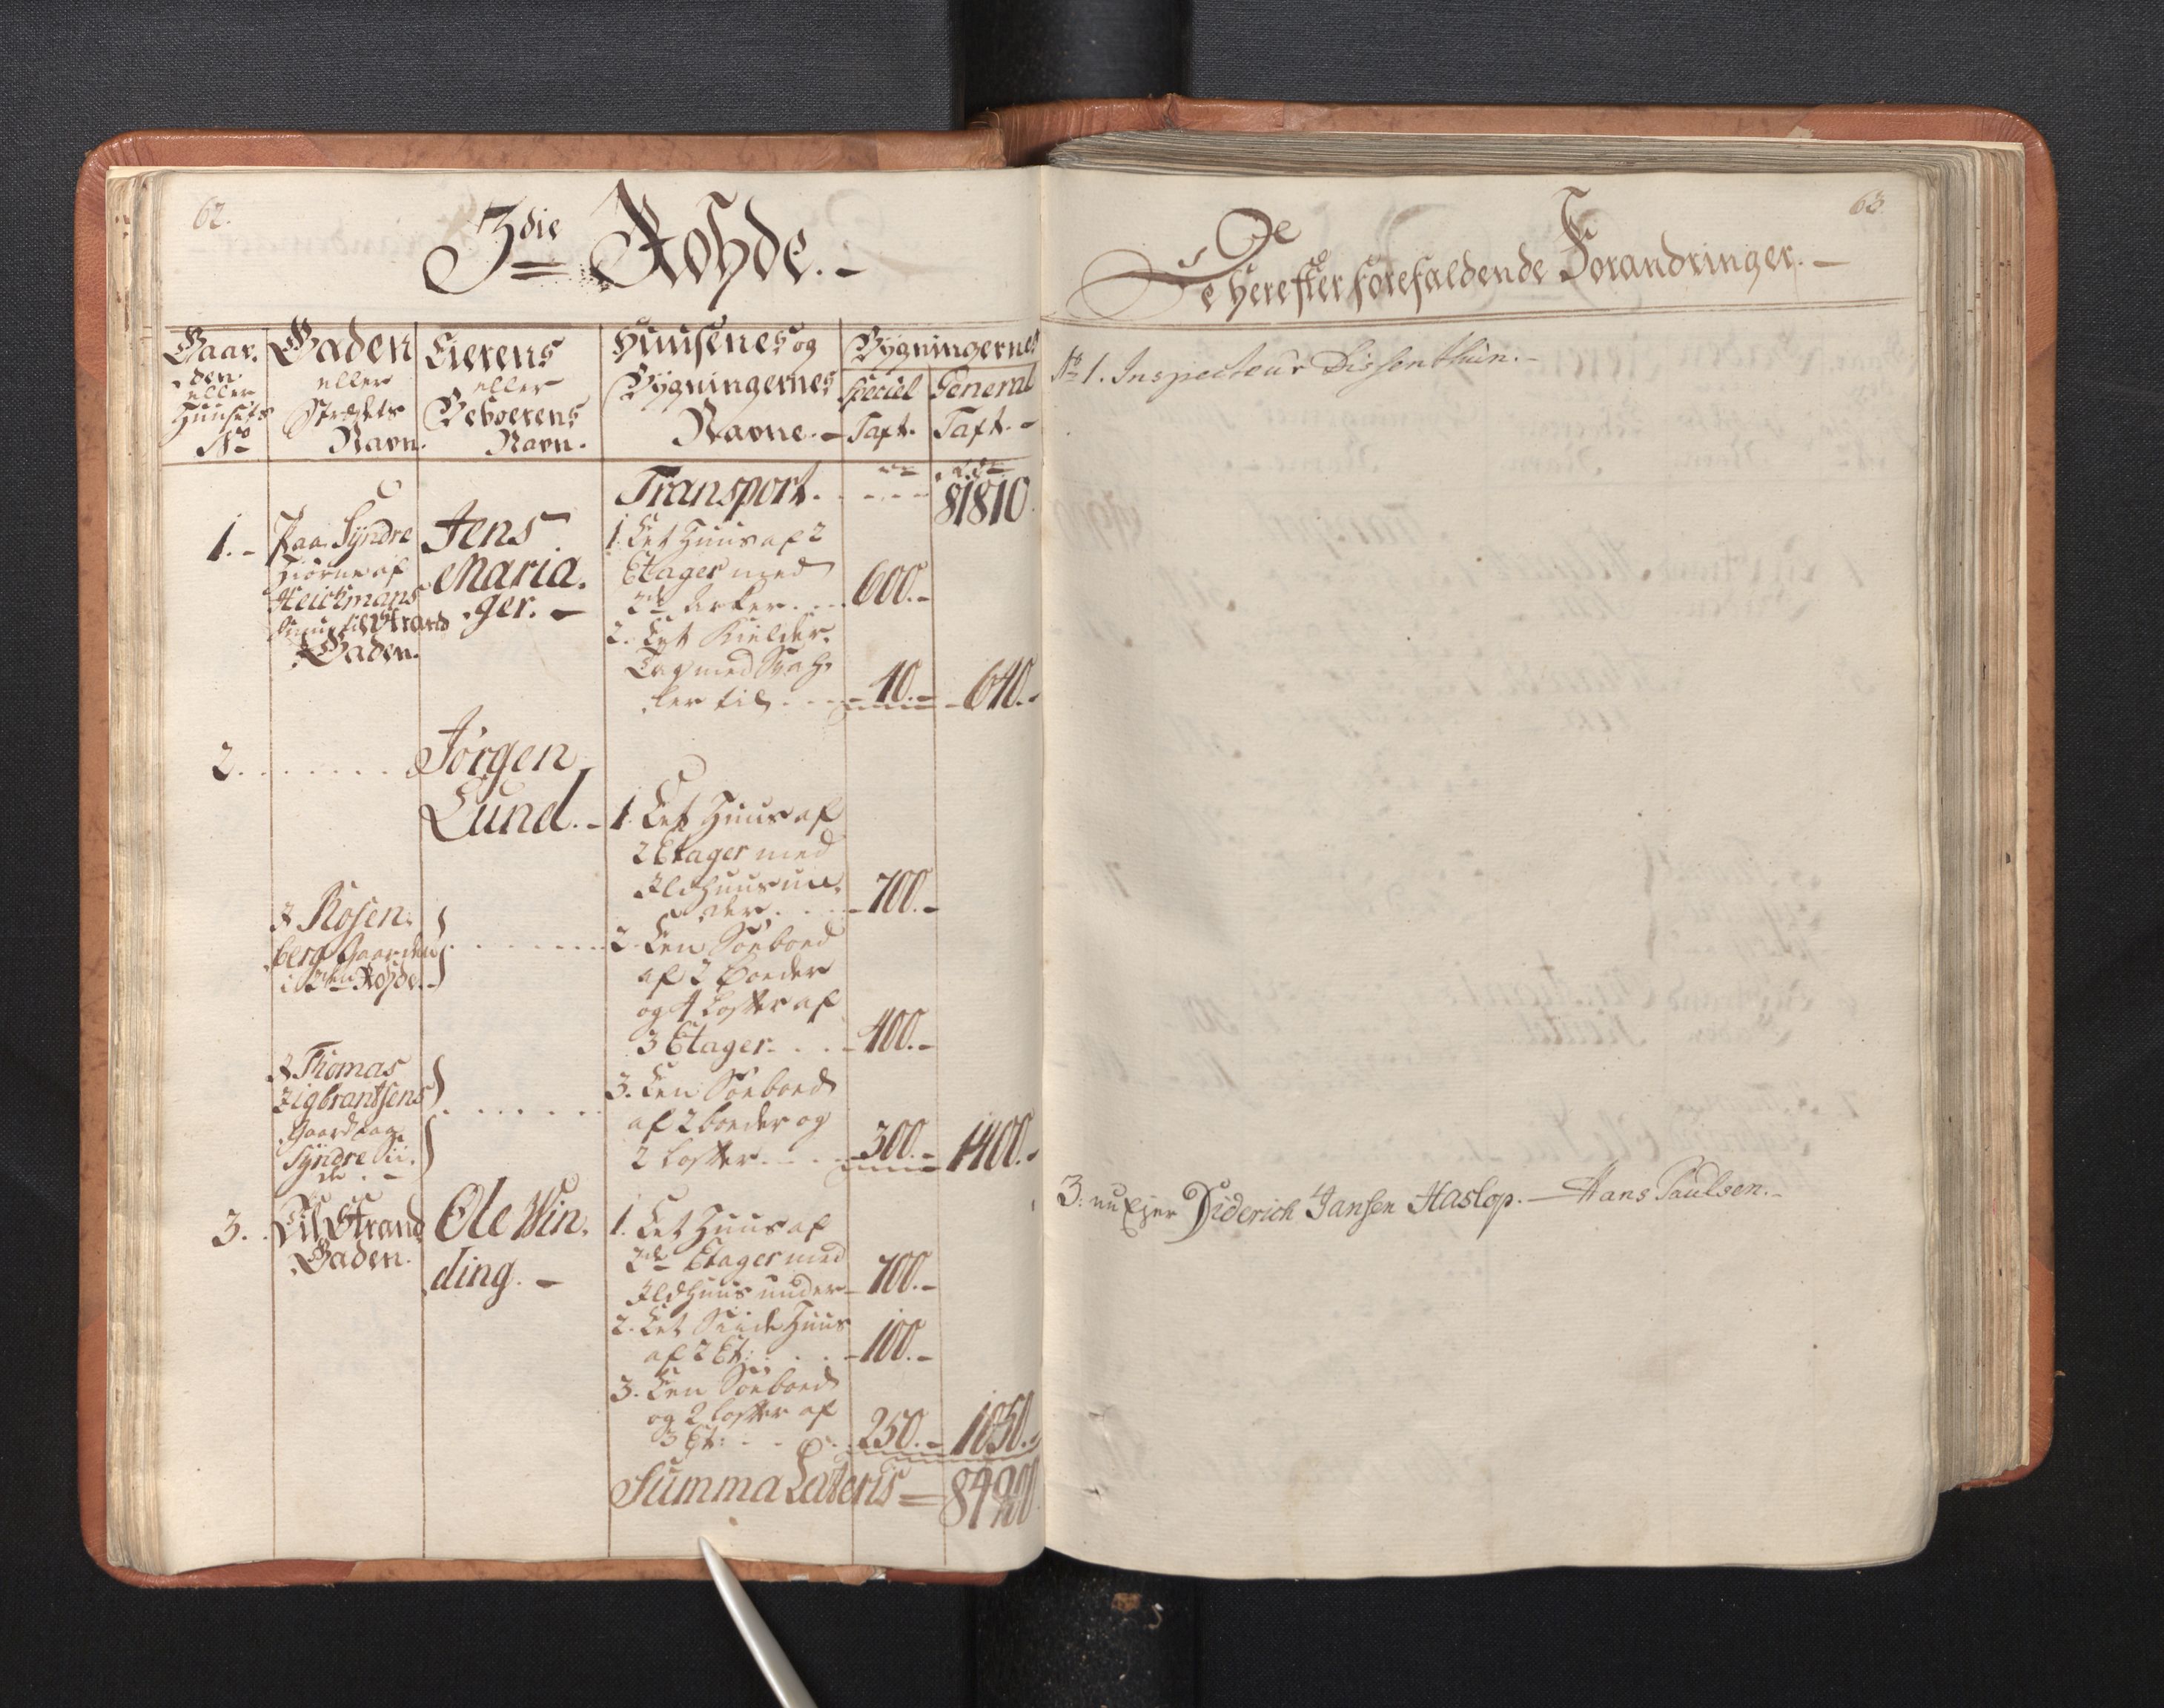 62.
3die Rohde.
Gaar-
den
eller
Huusets
No
Gaden
eller
Strædets
Navn.
Eierens
eller
Beboerens
Navn.
Huusenes og
Bygningernes
Navne.
Bygningernes
Special
Taxt.
General
Taxt.
Transport. 81810.
1. Paa Syndre
Hiørne af
Strand
Gaden.
Jens
Maria-
ger.
1. Eet Huus af 2
Etager med
2de 600.
2. Eet Kielder
med
til 40. 640.
2. Jørgen
Lund. 1. Eet Huus af
2 Etager med
Ildhuus un-
der 700.
I Rosen-
berg Gaarden
i Rohde.
2. Een Søeboed
af 2 Boeder
og 4 Lofter af
3 Etager 400.
I Thomas
Zigbrantsens
Gaard paa
Syndre Sii-
de.
3. Een Søeboed
af 2 boeder og
2 Lofter 300. 1400.
3. Til Strand
Gaden.
Ole Win-
ding.
1. Eet Huus af
2de Etager med
Ildhuus under 700.
2. Eet Siide Huus
af 2 Et: 100.
3. Een Søeboed
og 2 Lofter af
3 Et: 250. 1050.
Summa Lateris 84900
63
De herefter forefaldende Forandringer.
No 1. Inspecteur
3. nu Ejer Diderich Jansen Haslop. Hans Paulsen.